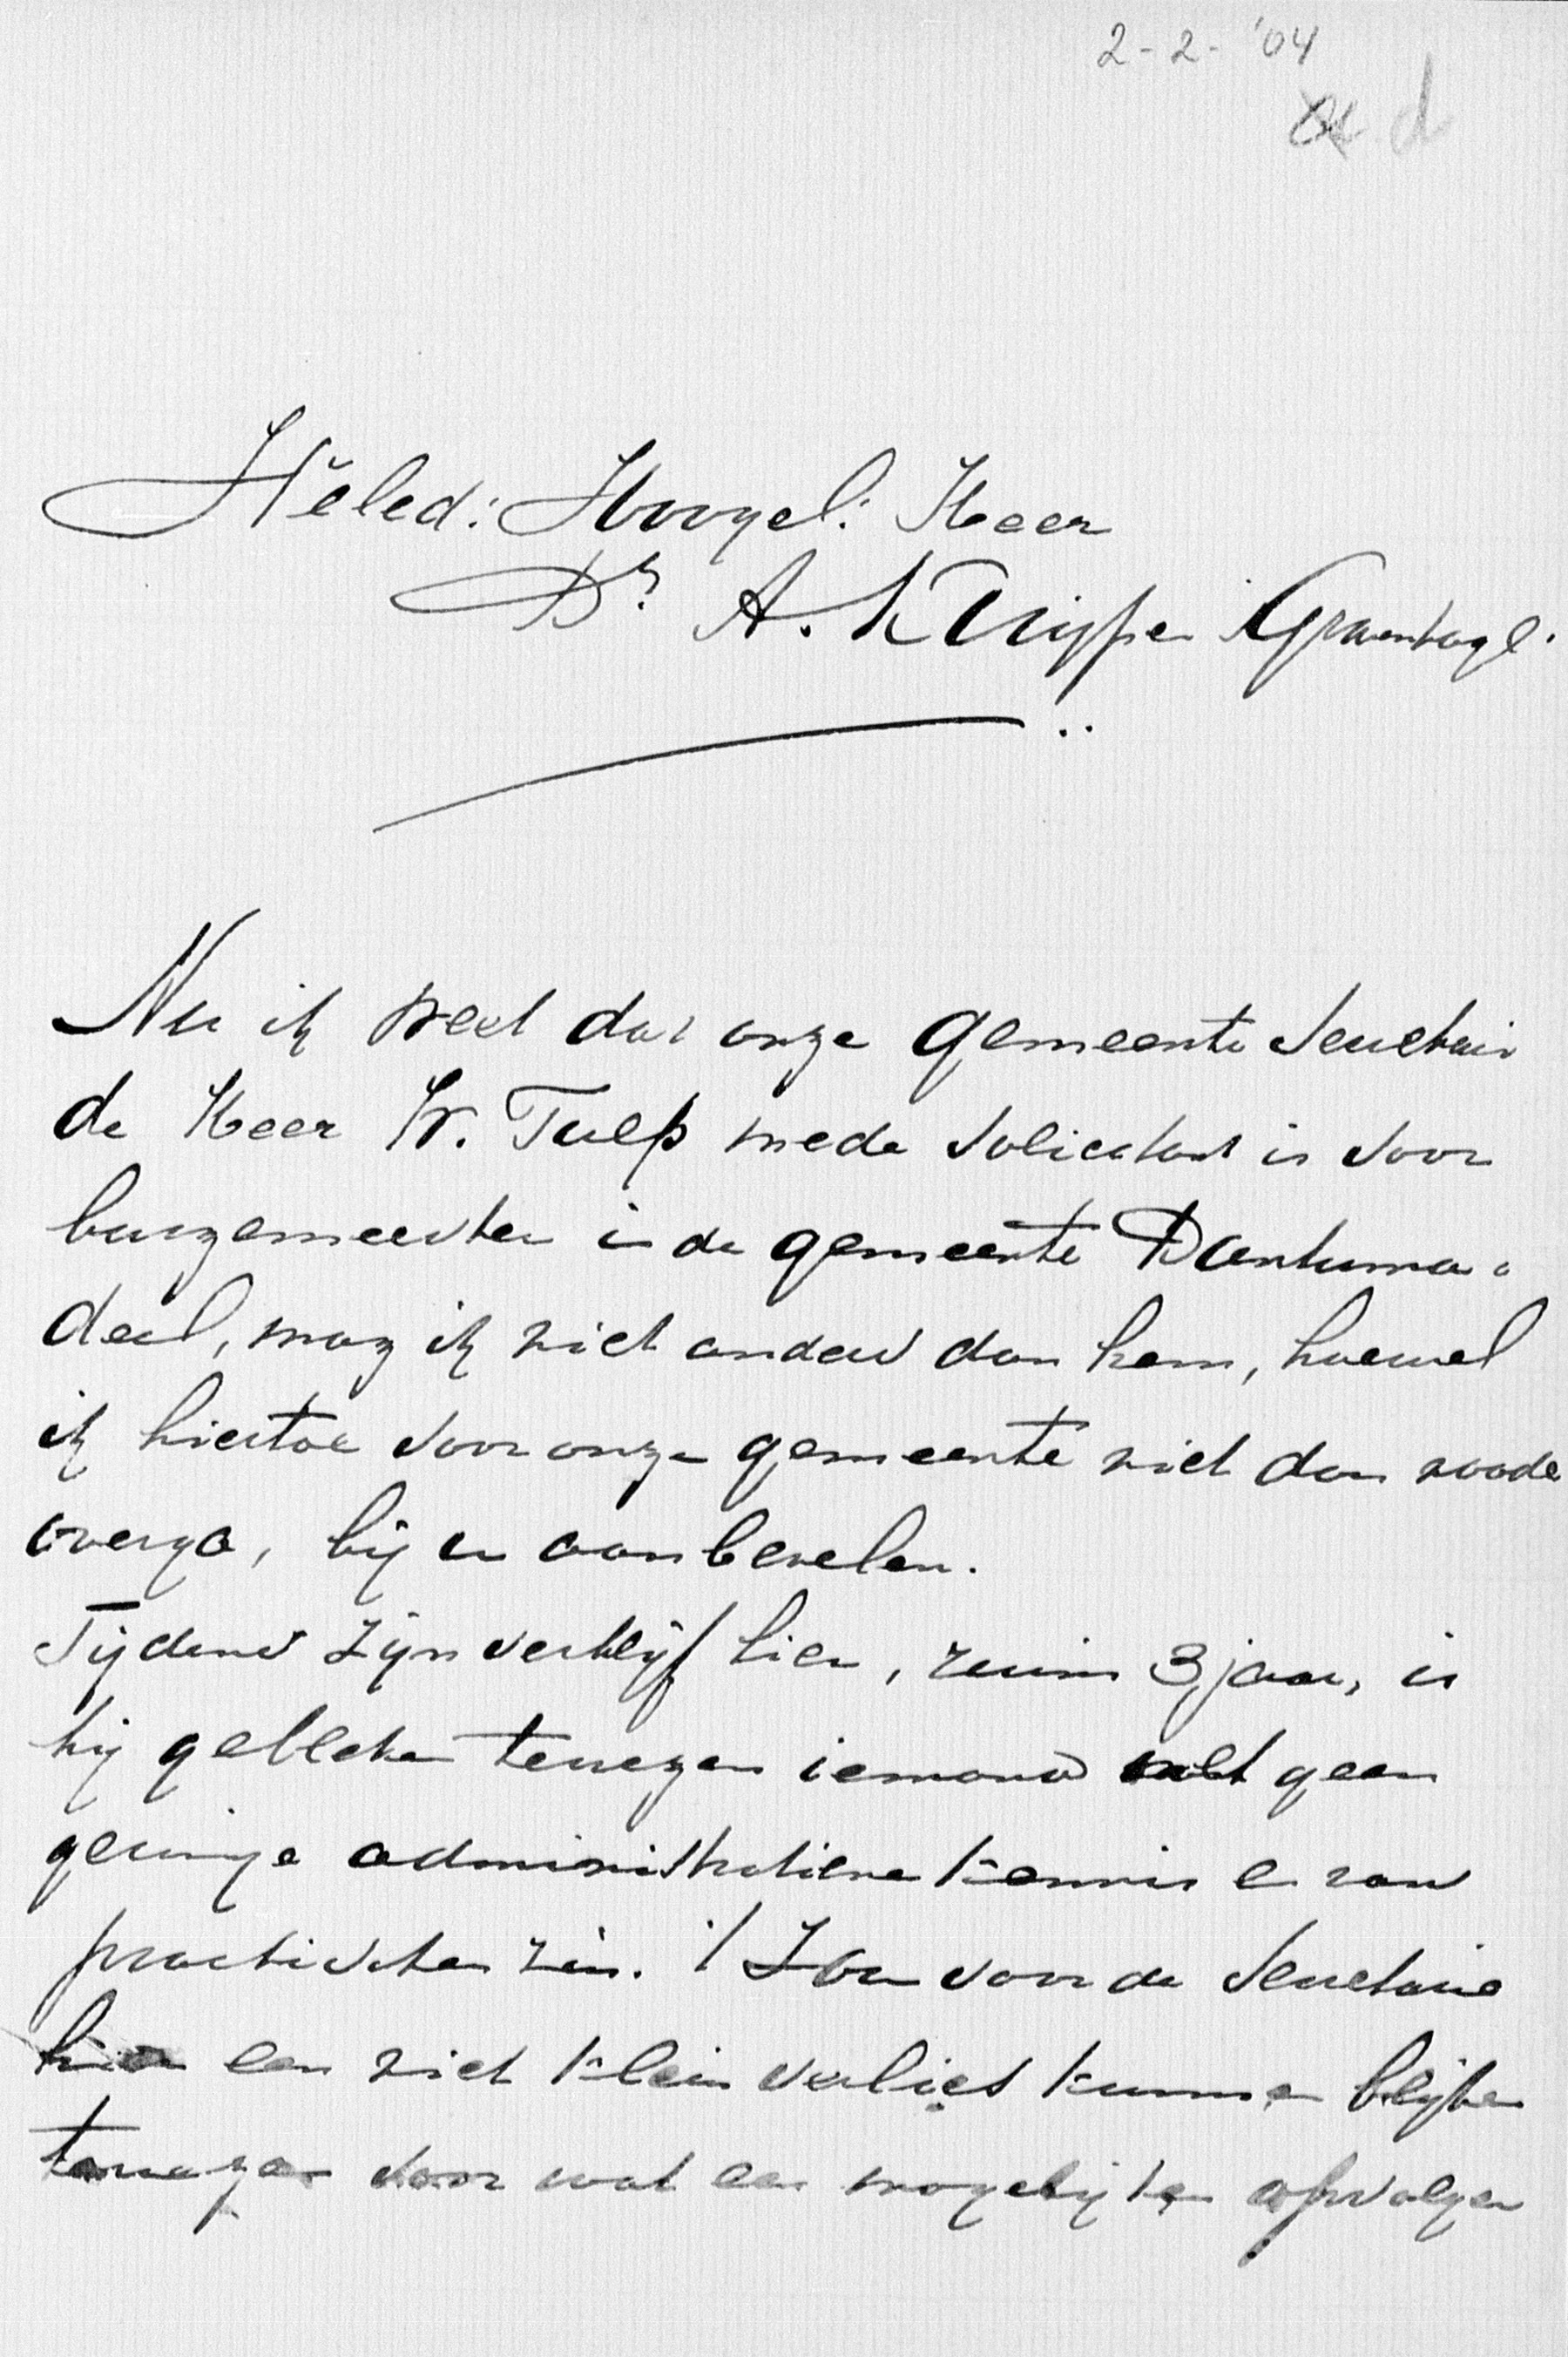 2-2-'04
d
Weled: Hooggel: Heer
Dr. A. Kuijper 's Gravenhage.
Nu ik weet dat onze gemeente Secretaris
de Heer W. Tulp mede solicitant is voor
burgemeester in de gemeente Dantuma-
deel, mag ik niet anders dan hem, hoewel
ik hiertoe voor onze gemeente niet dan noode
overga, bij u aanbevelen.
Tijdens zijn verblijf hier, ruim 3 jaar, is
hij gebleken te wezen iemand met geen
geringe administratieve kennis en van
practischen zin. 't Zou voor de Secretarie
hier een niet klein verlies kunnen blijken
te wezen voor wat een mogelijken opvolger